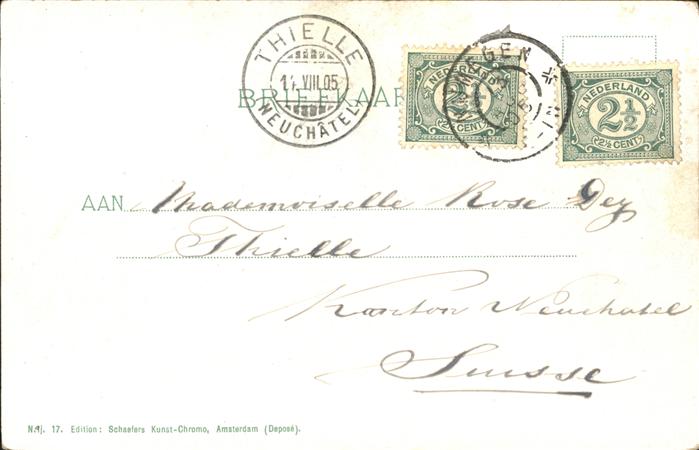 THIELLE
14.VIII.05
NEUCHÂTEL
BRIEFKAAR
NEDERLAND
2½
2½ CENT
NEDERLAND
2½
2½ CENT
AAN Mademoiselle Rose Dey
Thielle
Kanton Neuchatel
Suisse
17. Edition: Schaefers Kunst-Chromo, Amsterdam (Deposé).